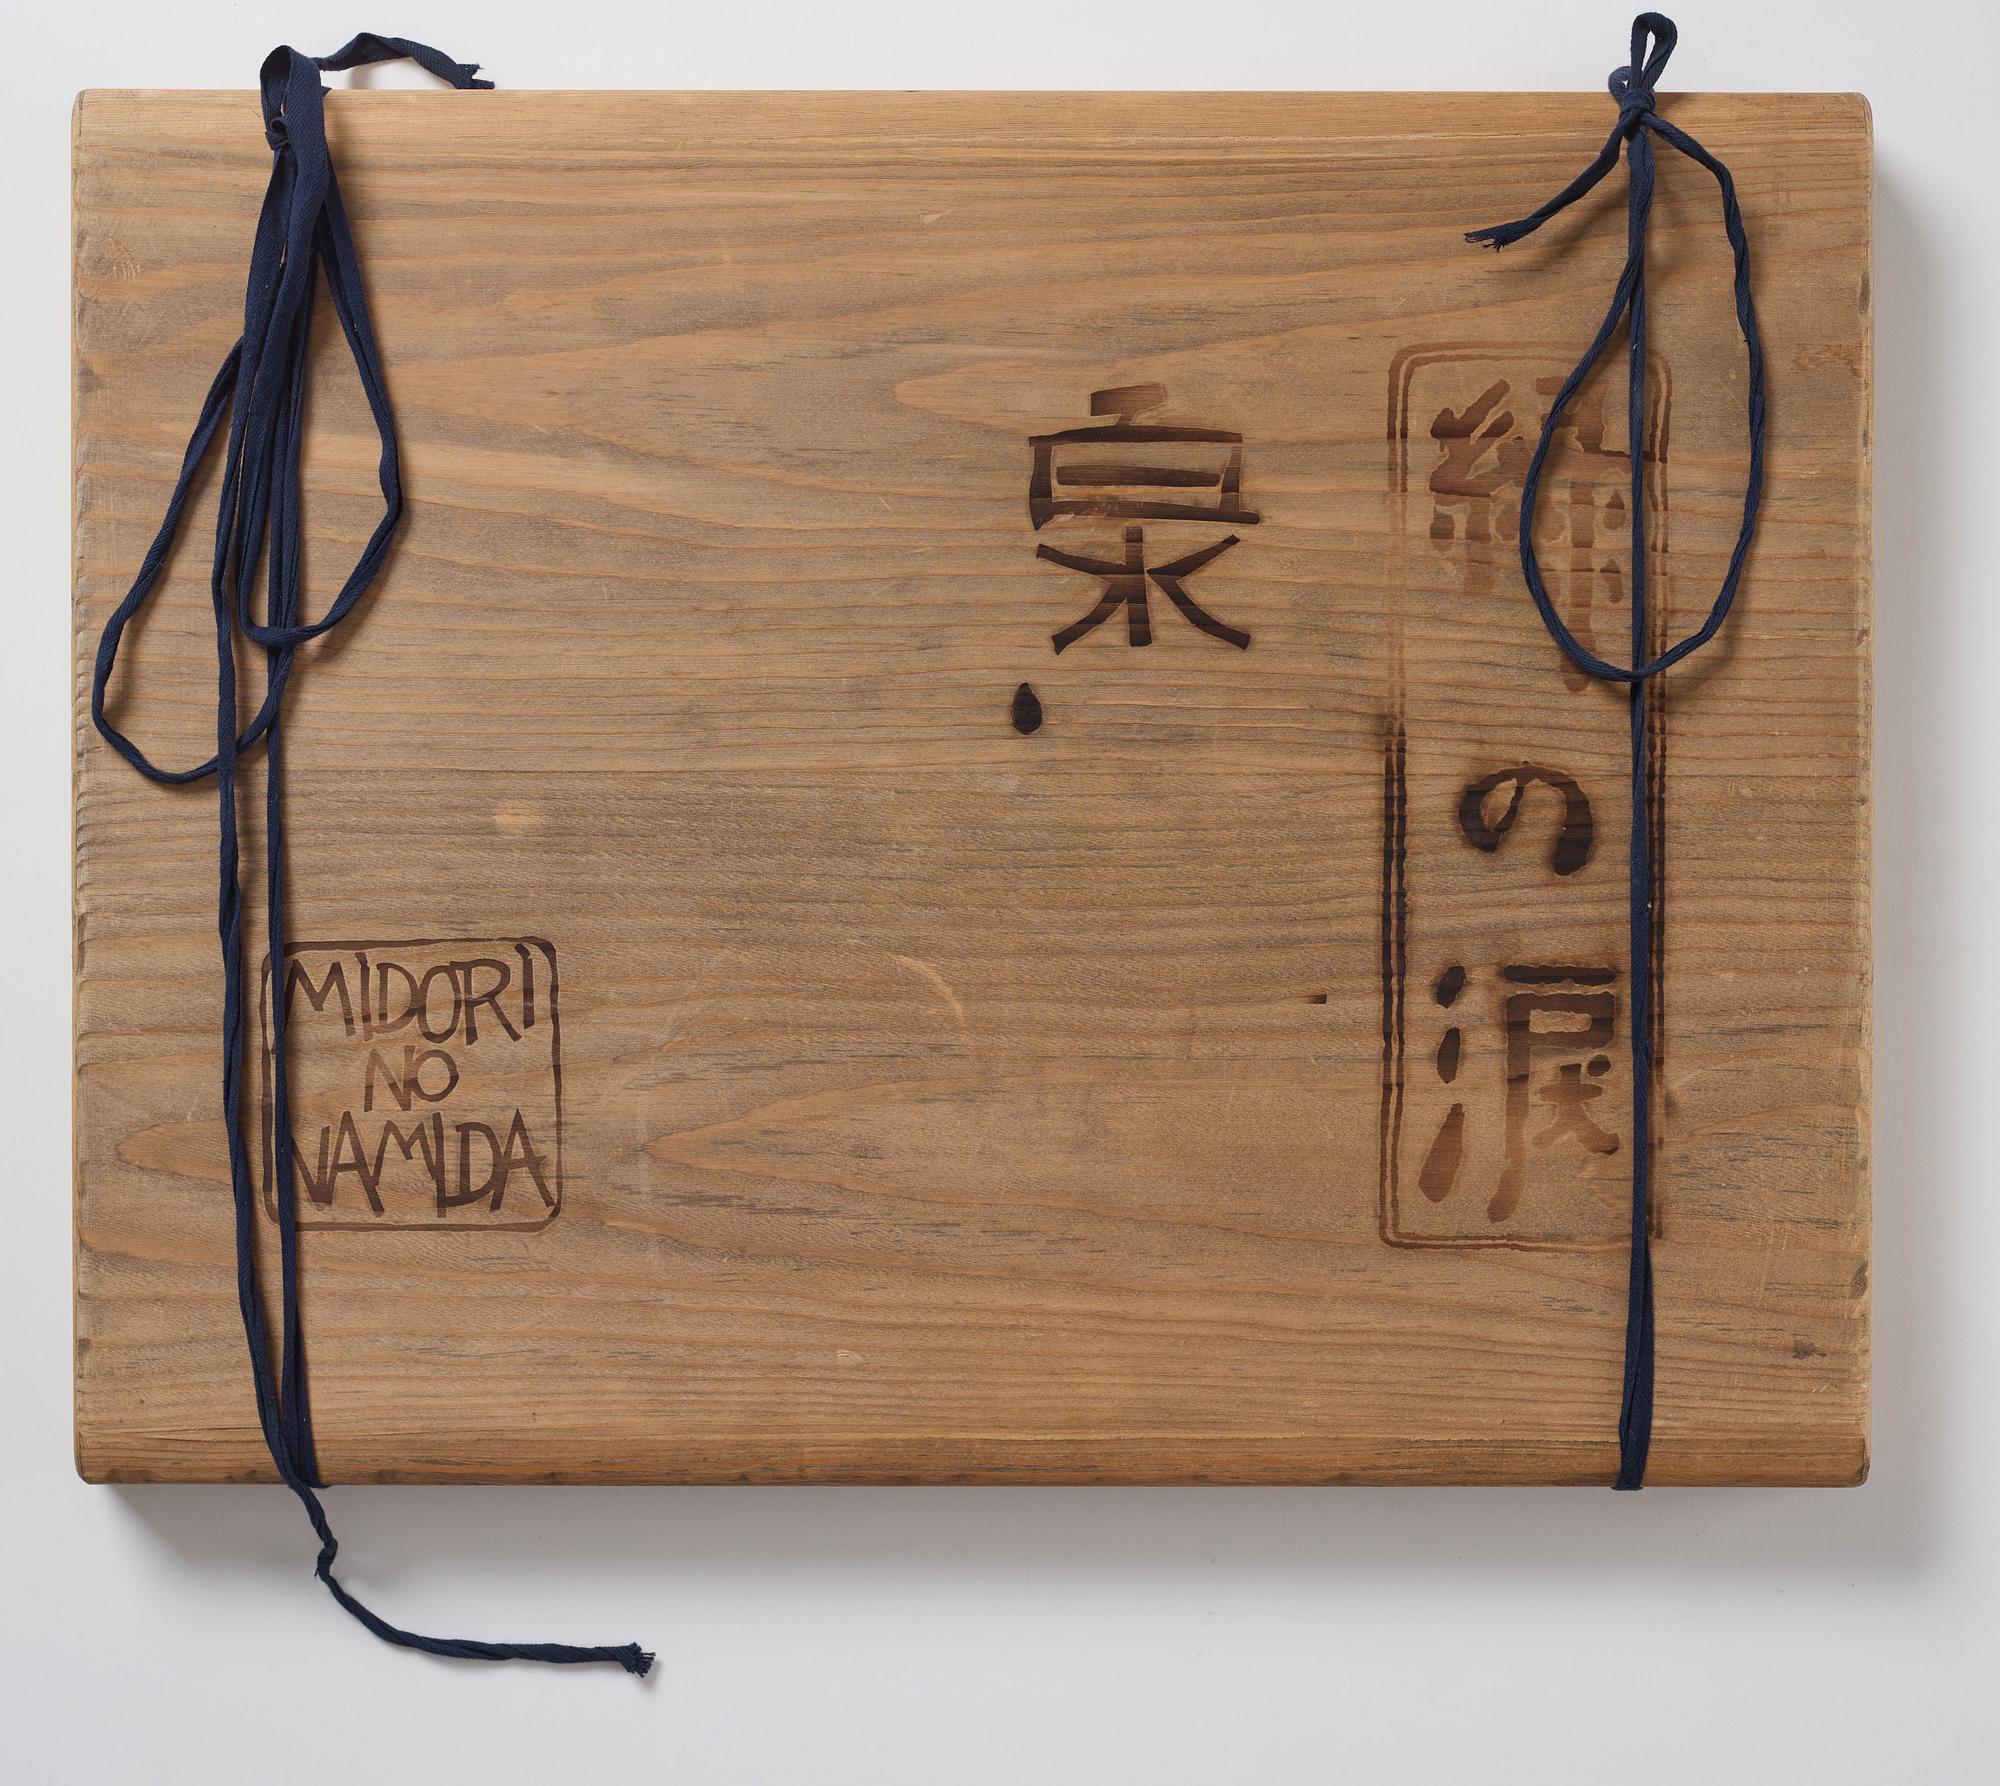 緑の涙
泉
MIDORI
NO
NAMIDA